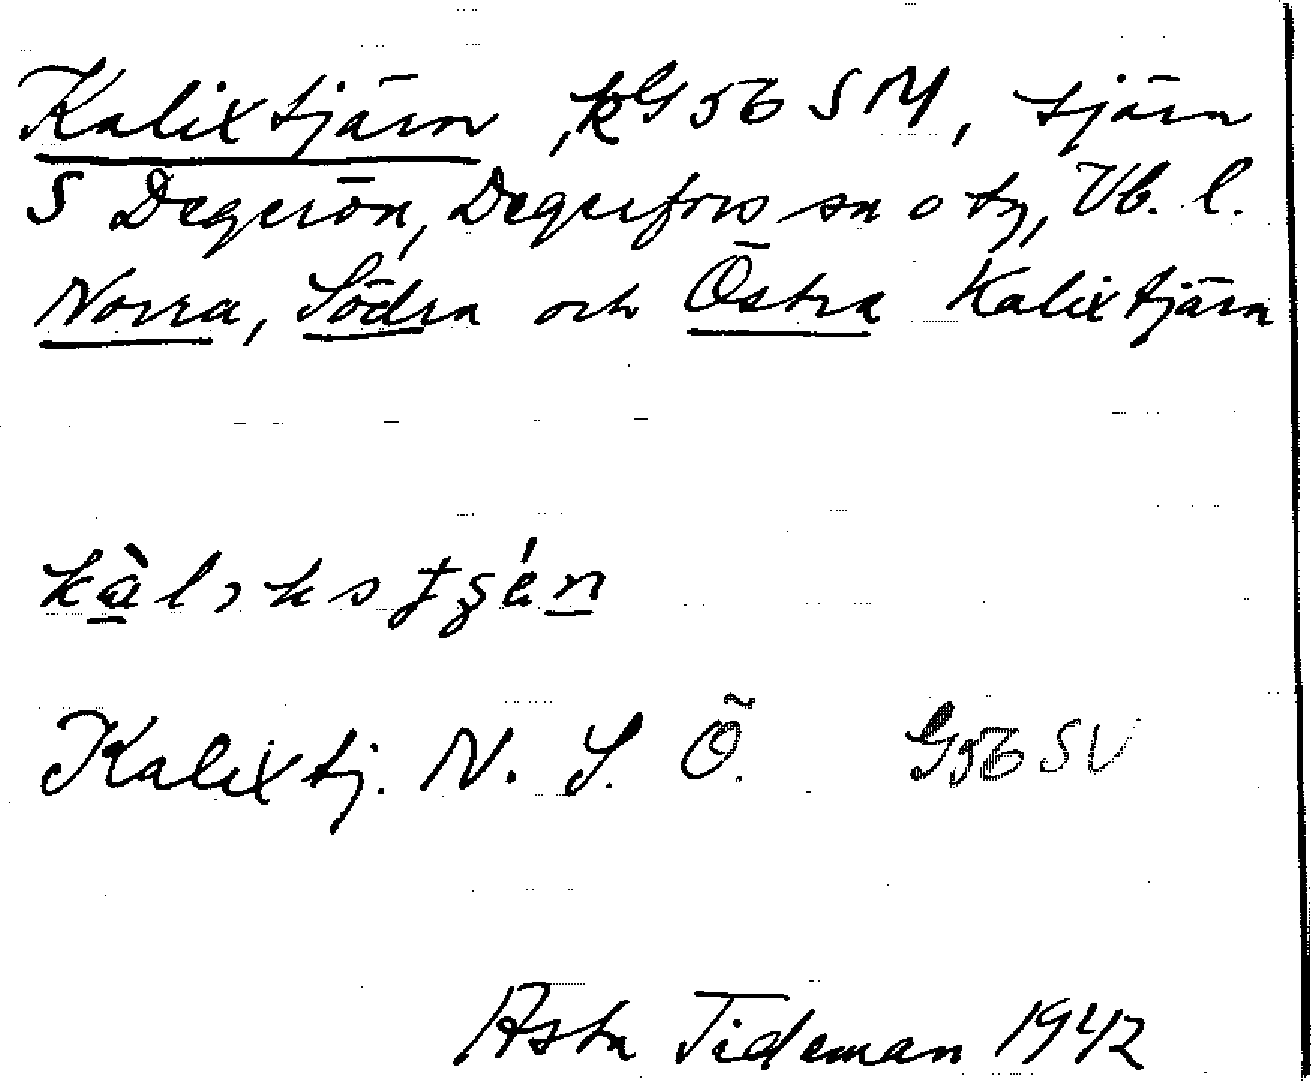 Kalixtjärn, kG 56 SM, tjärn
S Degerön, Degerfors sn o tg, Vb. l.
Norra, Södra och Östra Kalixtjärn
Kalixtj. N. S. Ö. G56 SV
Asta Tideman 1942